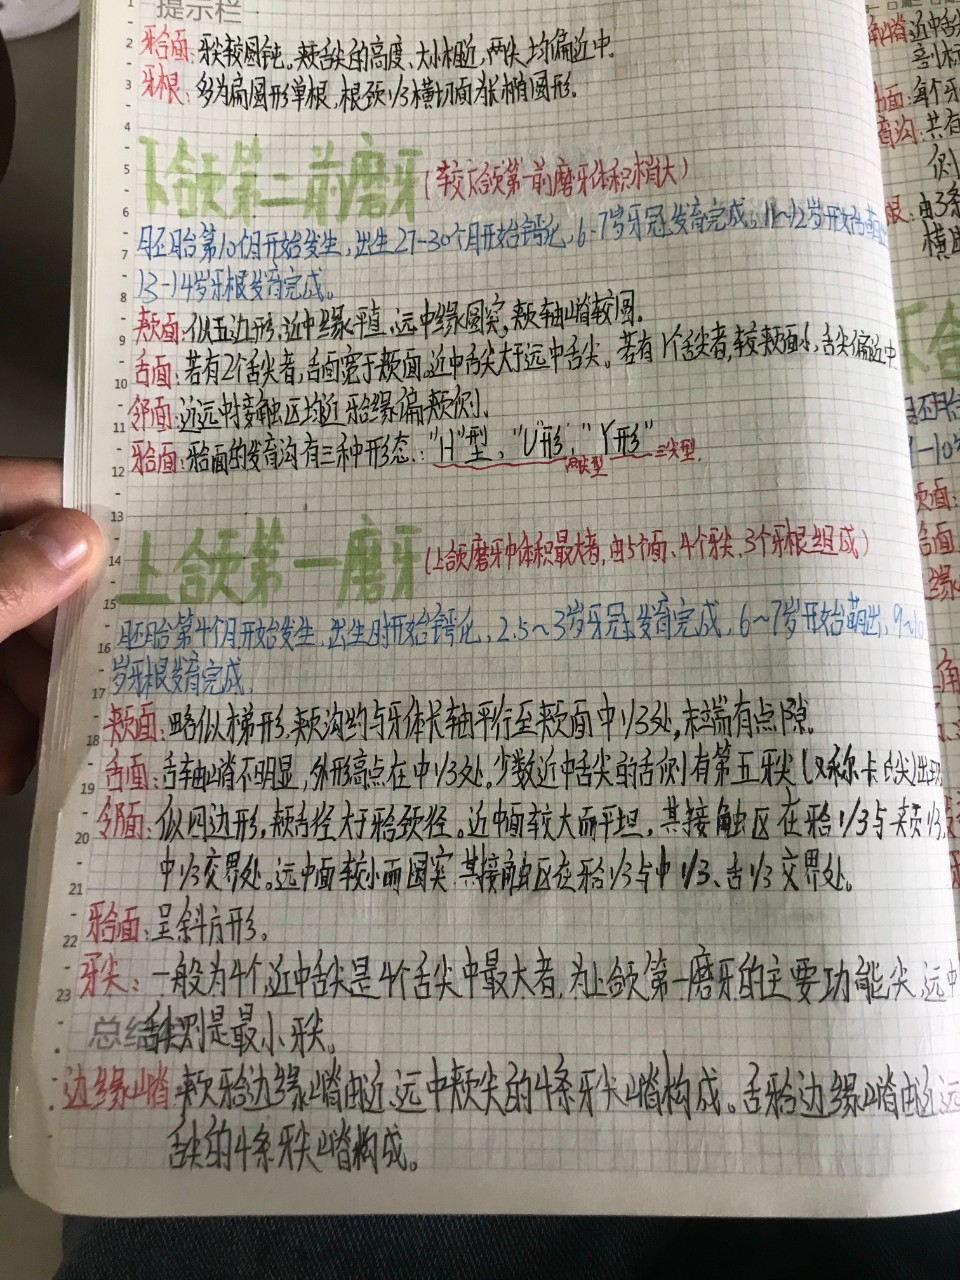 提示栏
𬌗面：牙尖较圆钝。颊舌尖的高度、大小相近，两尖均偏近中。
牙根：多为扁圆形单根，根颈1/3横切面为长椭圆形。
下颌第二前磨牙（较下颌第一前磨牙体积稍大）
胚胎第10个月开始发生，出生27-30个月开始钙化，6-7岁牙冠发育完成，11~12岁开始萌出
13-14岁牙根发育完成。
颊面：似五边形，近中缘平直，远中缘圆突，颊轴嵴较圆。
舌面：若有2个舌尖者，舌面宽于颊面，近中舌尖大于远中舌尖。若有1个舌尖者，较颊面小，舌尖偏近中
邻面：近远中接触区均近𬌗缘偏颊侧。
𬌗面：𬌗面的发育沟有三种形态："H"型，"U"形，"Y形"三尖型。
两尖型
上颌第一磨牙（上颌磨牙中体积最大者，由5个面、4个牙尖、3个牙根组成）
胚胎第4个月开始发生，出生时开始钙化，2.5~3岁牙冠发育完成，6~7岁开始萌出，9~10
岁牙根发育完成，
颊面：略似梯形，颊沟约与牙体长轴平行至颊面中1/3处，末端有点隙。
舌面：舌轴嵴不明显，外形高点在中1/3处。少数近中舌尖的舌侧有第五牙尖（又称卡氏尖）出现
邻面：似四边形，颊舌径大于𬌗颈径。近中面较大而平坦，其接触区在𬌗1/3与颊1/3、
中1/3交界处。远中面较小而圆突，其接触区在𬌗1/3与中1/3、舌1/3交界处。
𬌗面：呈斜方形。
牙尖：一般为4个，近中舌尖是4个舌尖中最大者，为上颌第一磨牙的主要功能尖，远中
总结
舌尖则是最小牙尖。
边缘嵴 颊𬌗边缘嵴由近、远中颊尖的4条牙尖嵴构成。舌𬌗边缘嵴由近远
舌尖的4条牙尖嵴构成。